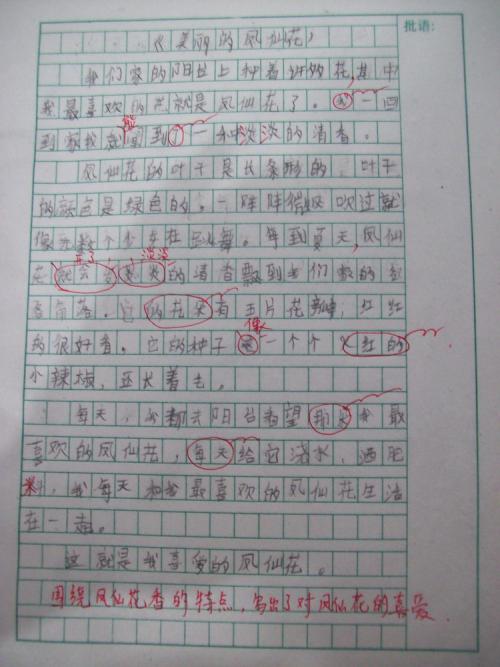 批语:
《美丽的凤仙花》
我们家的阳台上种着许多花,其中
我最喜欢的就是凤仙花了。我一回
到家我就能闻到了一种淡淡的清香。
凤仙花的叶子是长条形的,叶子
的颜色是绿色的。一阵阵微风吹过就
像无数个少女在跳舞。每到夏天,凤仙
花就会 来了 淡淡的清香飘到我们家的各
个角落。它的花朵有五片花瓣,红红
的很好看。它的种子像一个个红的
小辣椒,还长着毛。
每天,我都去阳台看望那朵我最
喜欢的凤仙花,每天给它浇水,洒肥
料,我每天和我最喜欢的凤仙花生活
在一起。
这就是我喜爱的凤仙花。
围绕凤仙花香的特点,写出了对凤仙花的喜爱.